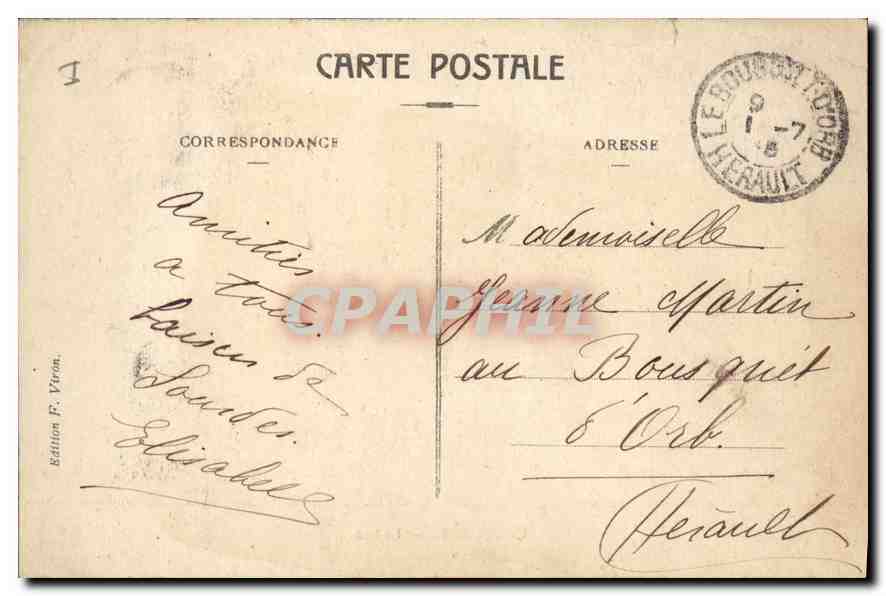 I
CARTE POSTALE
CORRESPONDANCE
ADRESSE
LE BOUSQUET-D'ORB
9
1 -7
HERAULT
Amitiés
a tous.
baisers de
Lourdes.
Elisabeth
Mademoiselle
Jeanne Martin
au Bousquét
d'Orb.
Hérault
Edition F. Viron.
CPAPHIL